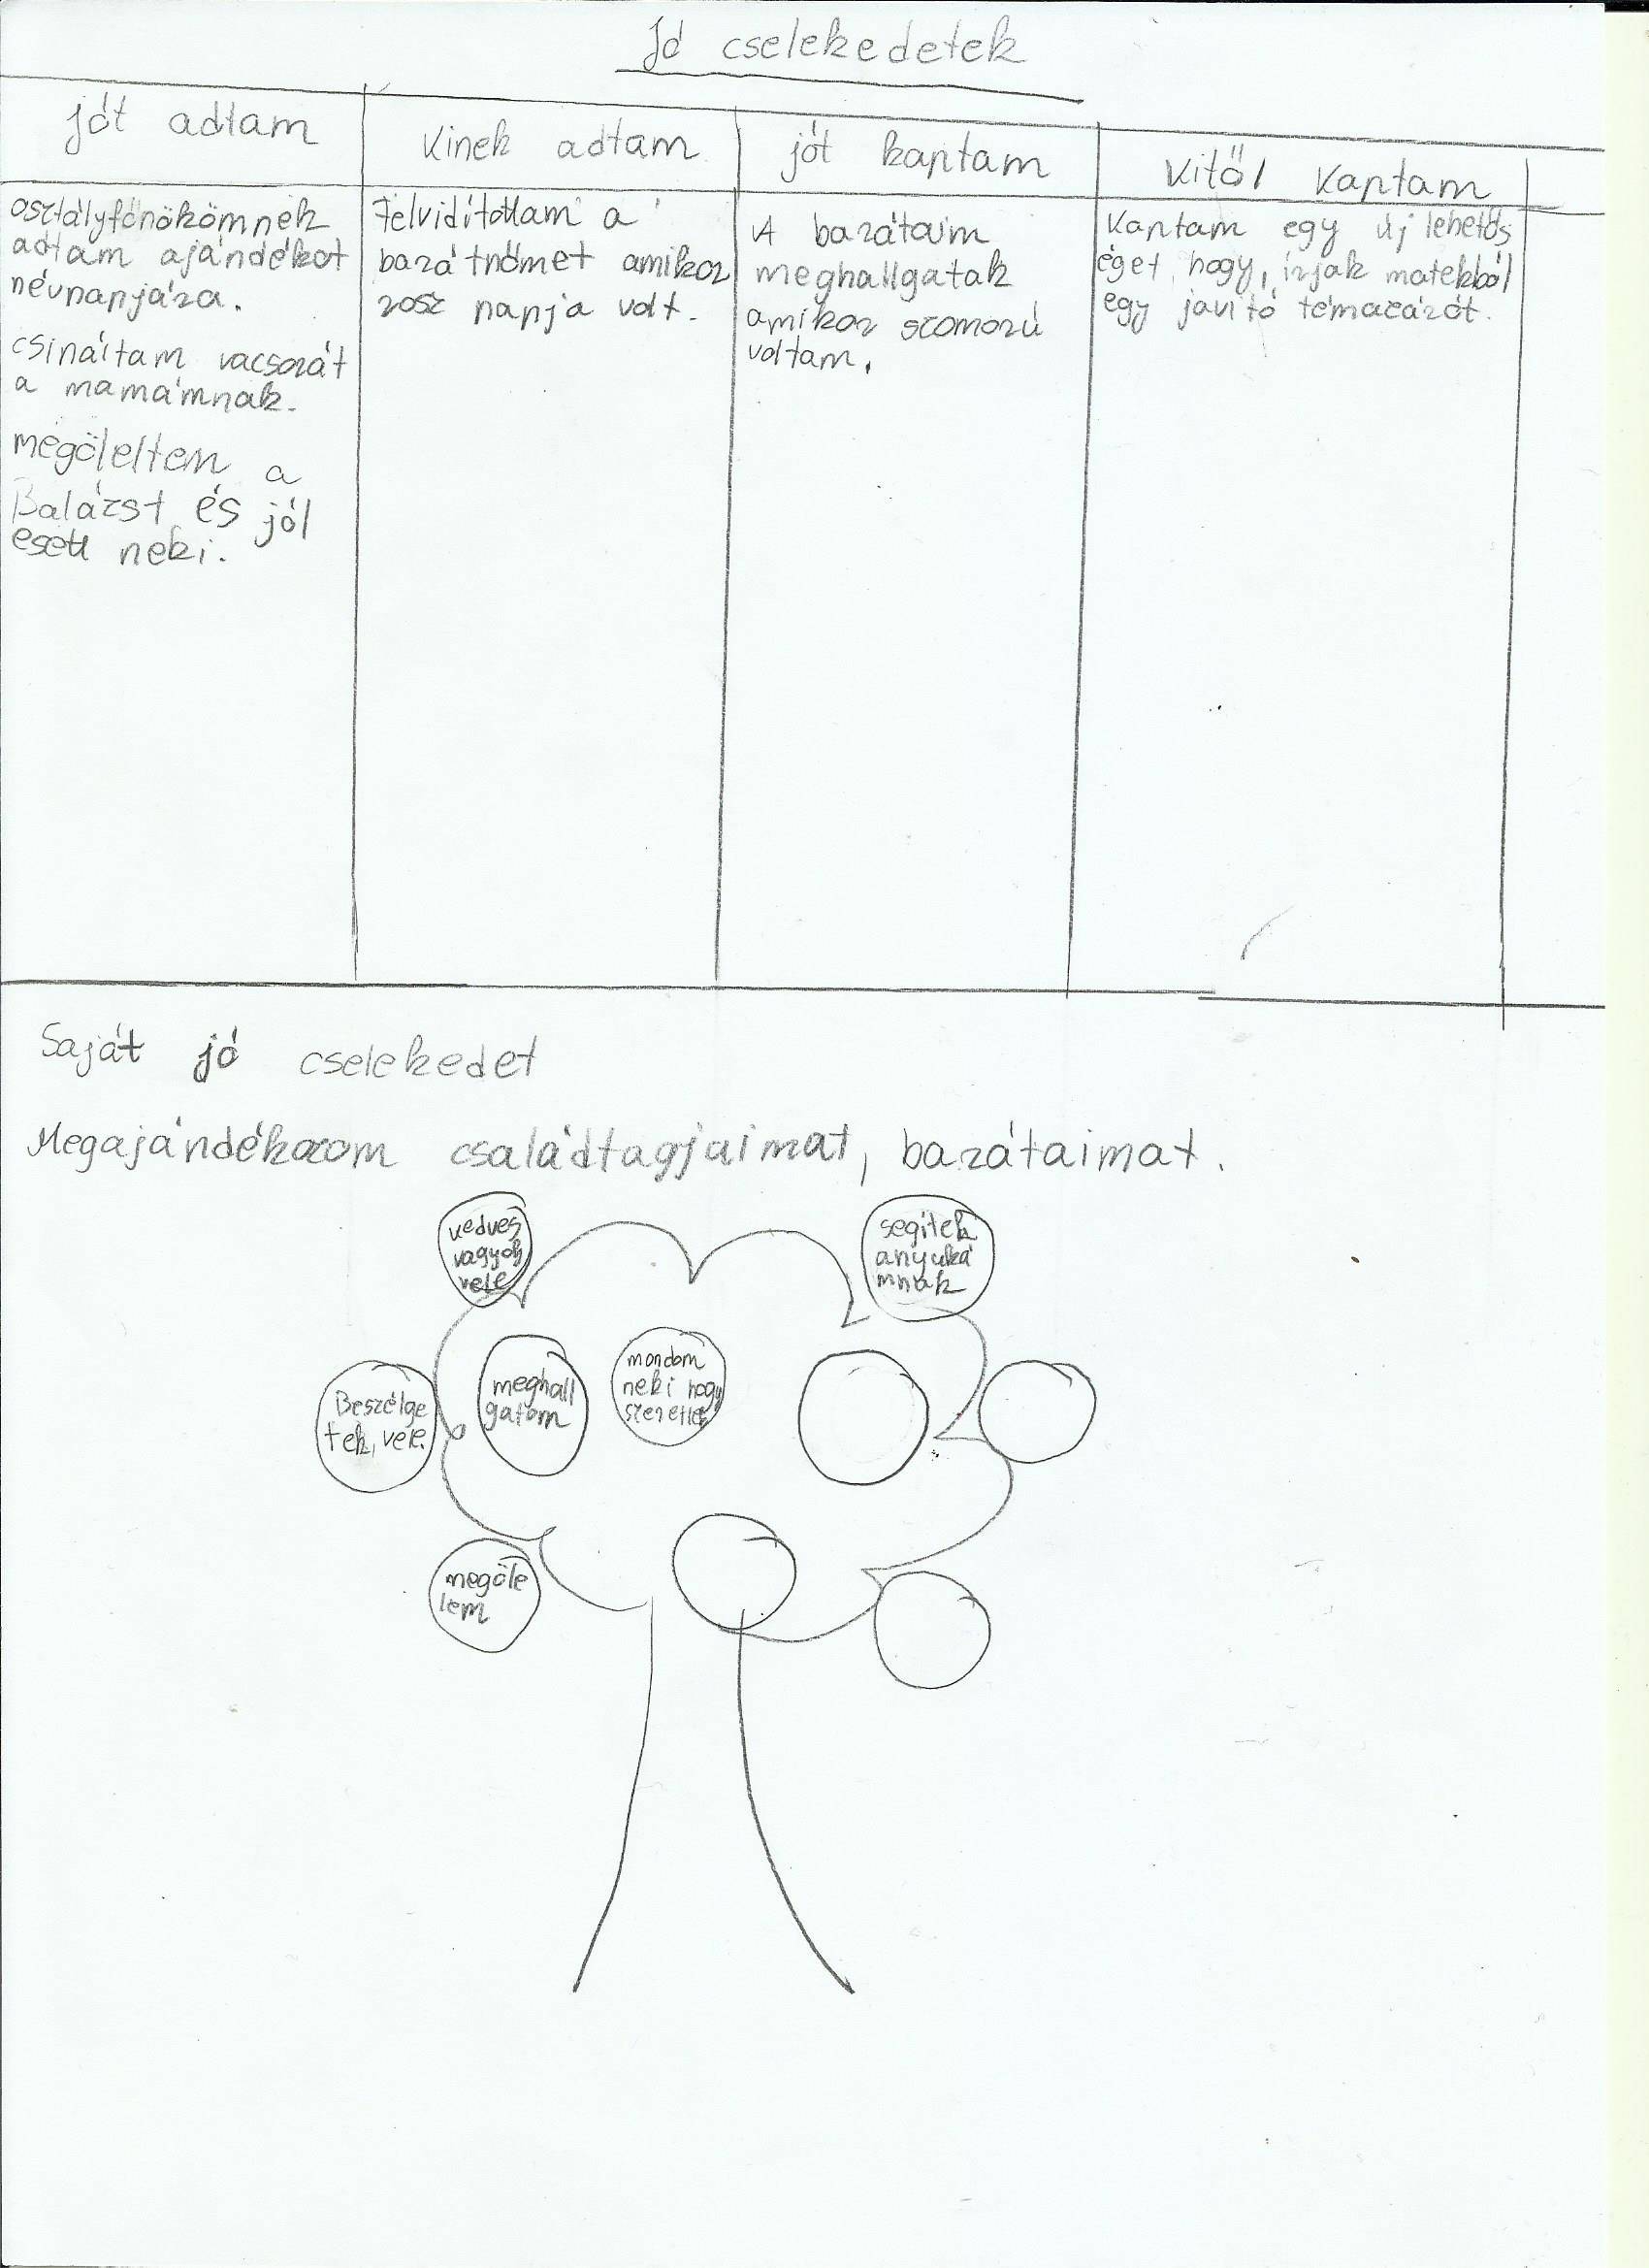 Jó cselekedetek
jót adtam
Kinek adtam
jót kaptam
Kitől kaptam
osztályfőnökömnek
adtam ajándékot
névnapjára.
csináltam vacsorát
a mamámnak.
megöleltem a
Balázst és jól
esett neki.
Felvidítottam a
barátnőmet amikor
rosz napja volt.
A barátaim
meghallgatak
amikor szomorú
voltam.
Kaptam egy új lehetős
éget, hogy, írjak matekból
egy javító témazárót.
Saját jó cselekedet
Megajándékozom családtagjaimat, barátaimat.
kedves
vagyok
vele
segítek
anyuká
mnak
Beszélge
tek, vele.
meghall
gatom
mondom
neki hogy
szeretle
megöle
lem